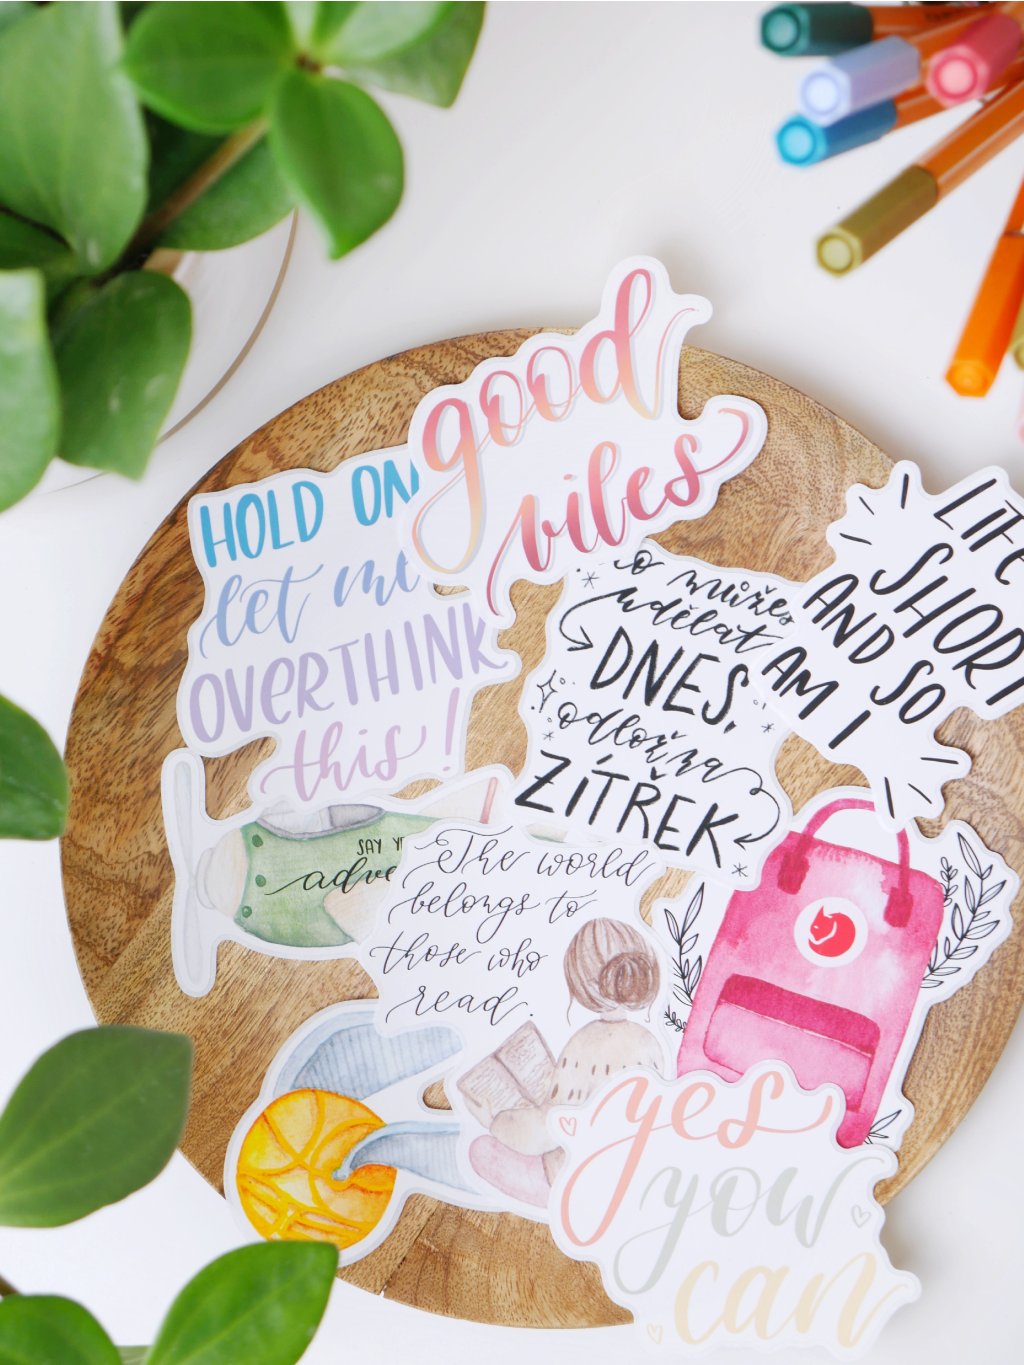 good
vibes
HOLD ON
let me
OVERTHINK
this!
o můžeš
udělat
DNES,
odložna
ZÍTŘEK
LIFE
SHORT
AND SO
AM I
SAY YE
adve
The world
belongs to
those who
read.
yes
you
can